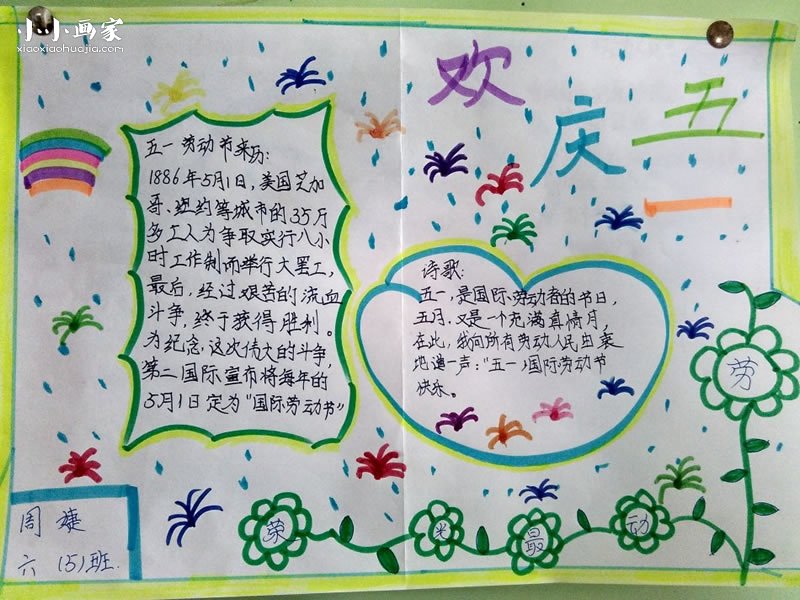 小小画家
xiaoxiaohuajia.com
欢庆五一
五一劳动节来历:
1886年5月1日,美国芝加
哥、纽约等城市的35万
多工人为争取实行八小
时工作制而举行大罢工,
最后,经过艰苦的流血
斗争,终于获得胜利。
为纪念这次伟大的斗争,
第二国际宣布将每年的
5月1日定为"国际劳动节"
诗歌:
五一,是国际劳动者的节日,
五月,又是一个充满真情月,
在此,我向所有劳动人民由衷
地道一声:"五一"国际劳动节
快乐。
劳
动
最
光
荣
周婕
六(5)班.